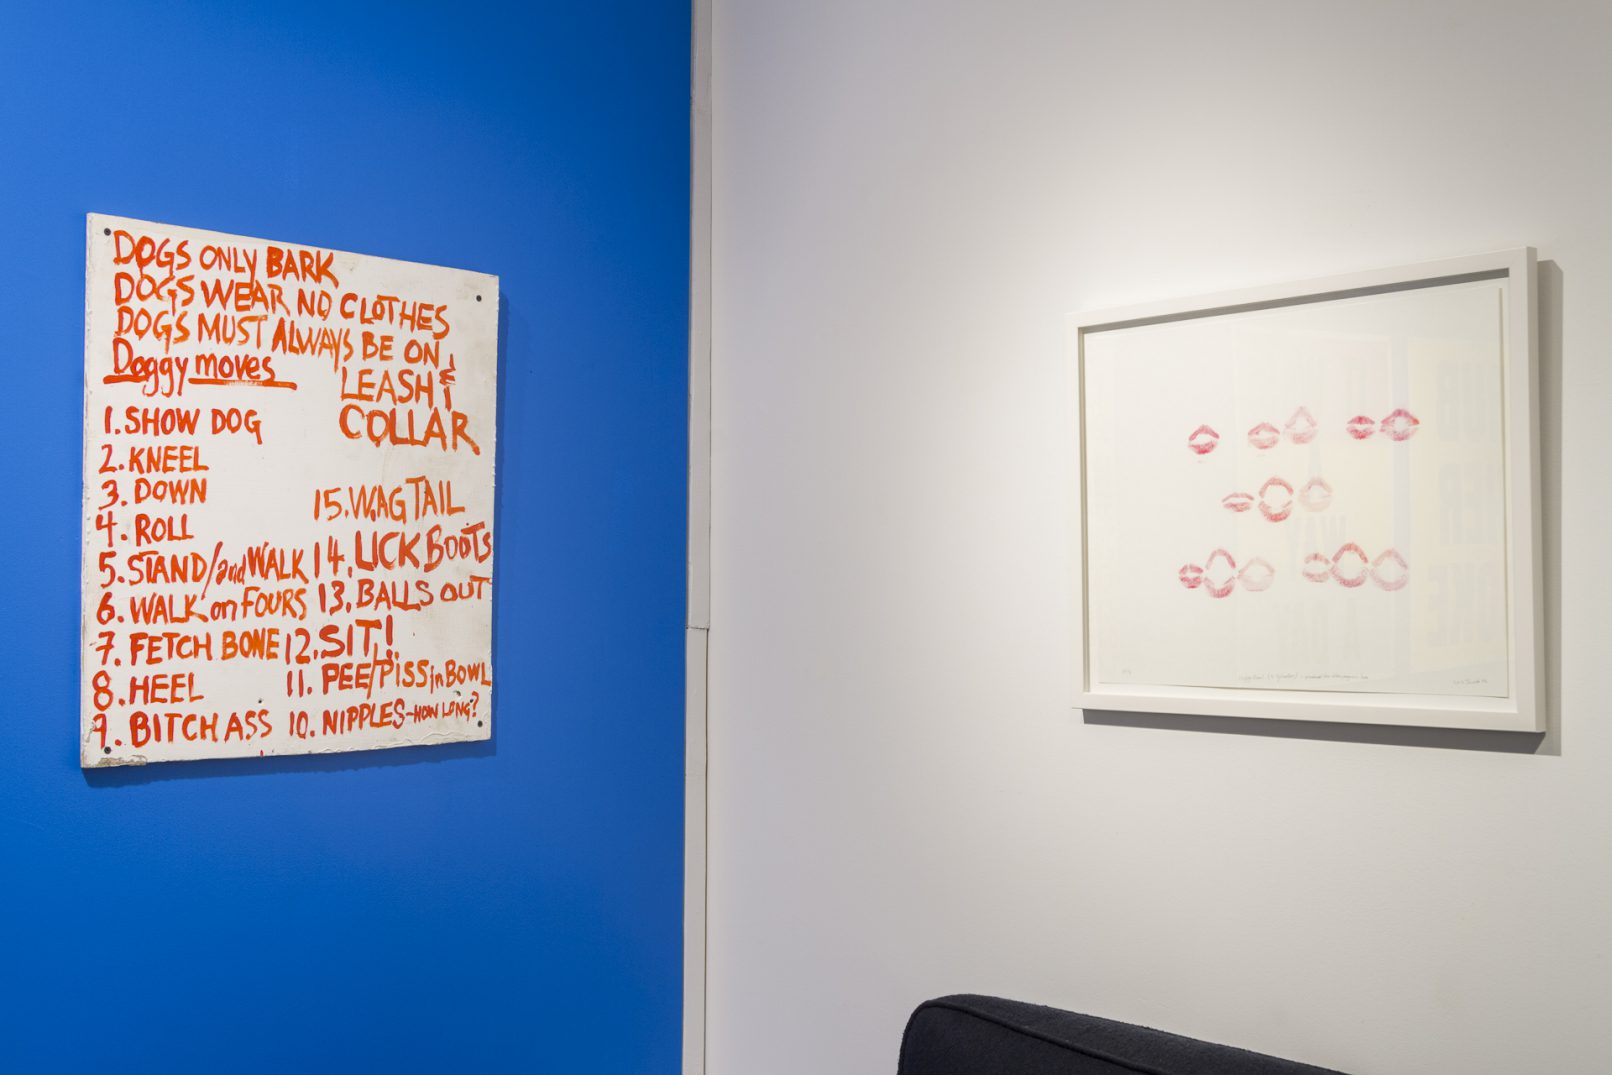 DOGS ONLY BARK
DOGS WEAR NO CLOTHES
DOGS MUST ALWAYS BE ON
LEASH &
COLLAR
Doggy moves
1. SHOW DOG
2. KNEEL
3. DOWN
4. ROLL
5. STAND/and WALK
6. WALK on FOURS
7. FETCH BONE
8. HEEL
9. BITCH ASS
15. WAG TAIL
14. LICK BOOTS
13. BALLS OUT
12. SIT!
11. PEE/PISS in BOWL
10. NIPPLES - HOW LONG?